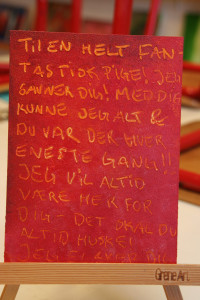 TIL EN HELT FAN-
TASTISK PIGE! JEG
SAVNER DIG! MED DIG
KUNNE JEG ALT &
DU VAR DER HVER
ENESTE GANG!!
JEG VIL ALTID
VÆRE HER FOR
DIG - DET SKAL DU
ALTID HUSKE!
JEG